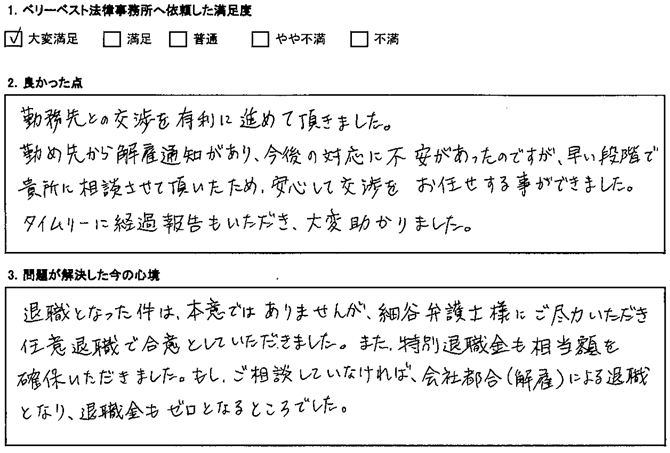 1. ベリーベスト法律事務所へ依頼した満足度
☑ 大変満足 □ 満足 □ 普通 □ やや不満 □ 不満
2. 良かった点
勤務先との交渉を有利に進めて頂きました。
勤め先から解雇通知があり、今後の対応に不安があったのですが、早い段階で
貴所に相談させて頂いたため、安心して交渉を お任せする事ができました。
タイムリーに経過報告もいただき、大変助かりました。
3. 問題が解決した今の心境
退職となった件は、本意ではありませんが、細谷弁護士様にご尽力いただき
任意退職で合意としていただきました。また、特別退職金も相当額を
確保いただきました。もし、ご相談していなければ、会社都合(解雇)による退職
となり、退職金もゼロとなるところでした。